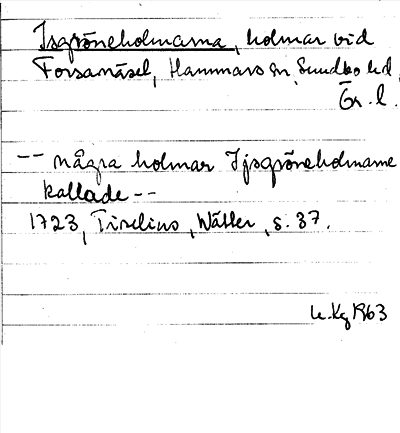 Isgröneholmarna, holmar vid
Forsanäset, Hammars sn, Sundbo hd,
Ör. l.
-- några holmar Ijsgröneholmarne
kallade --
1723, Tiselius, Wätter, s. 37.
1963